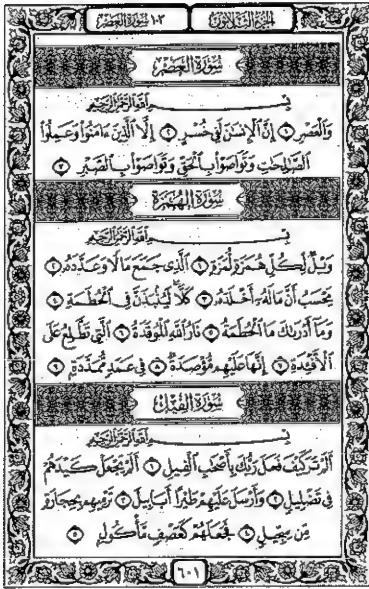 ١٠٣ سُورَةُ العَصْرِ
الجُزْءُ الثَّلَاثُونَ
سُورَةُ العَصْرِ
بِسْمِ اللَّهِ الرَّحْمَٰنِ الرَّحِيمِ
وَالْعَصْرِ ١ إِنَّ الْإِنسَانَ لَفِي خُسْرٍ ٢ إِلَّا الَّذِينَ ءَامَنُوا وَعَمِلُوا
الصَّالِحَاتِ وَتَوَاصَوْا بِالْحَقِّ وَتَوَاصَوْا بِالصَّبْرِ ٣
سُورَةُ الهُمَزَةِ
بِسْمِ اللَّهِ الرَّحْمَٰنِ الرَّحِيمِ
وَيْلٌ لِّكُلِّ هُمَزَةٍ لُّمَزَةٍ ١ الَّذِي جَمَعَ مَالًا وَعَدَّدَهُ ٢
يَحْسَبُ أَنَّ مَالَهُ أَخْلَدَهُ ٣ كَلَّا لَيُنبَذَنَّ فِي الْحُطَمَةِ ٤
وَمَا أَدْرَاكَ مَا الْحُطَمَةُ ٥ نَارُ اللَّهِ الْمُوقَدَةُ ٦ الَّتِي تَطَّلِعُ عَلَى
الْأَفْئِدَةِ ٧ إِنَّهَا عَلَيْهِم مُّؤْصَدَةٌ ٨ فِي عَمَدٍ مُّمَدَّدَةٍ ٩
سُورَةُ الفِيلِ
بِسْمِ اللَّهِ الرَّحْمَٰنِ الرَّحِيمِ
أَلَمْ تَرَ كَيْفَ فَعَلَ رَبُّكَ بِأَصْحَابِ الْفِيلِ ١ أَلَمْ يَجْعَلْ كَيْدَهُمْ
فِي تَضْلِيلٍ ٢ وَأَرْسَلَ عَلَيْهِمْ طَيْرًا أَبَابِيلَ ٣ تَرْمِيهِم بِحِجَارَةٍ
مِّن سِجِّيلٍ ٤ فَجَعَلَهُمْ كَعَصْفٍ مَّأْكُولٍ ٥
٦٠١